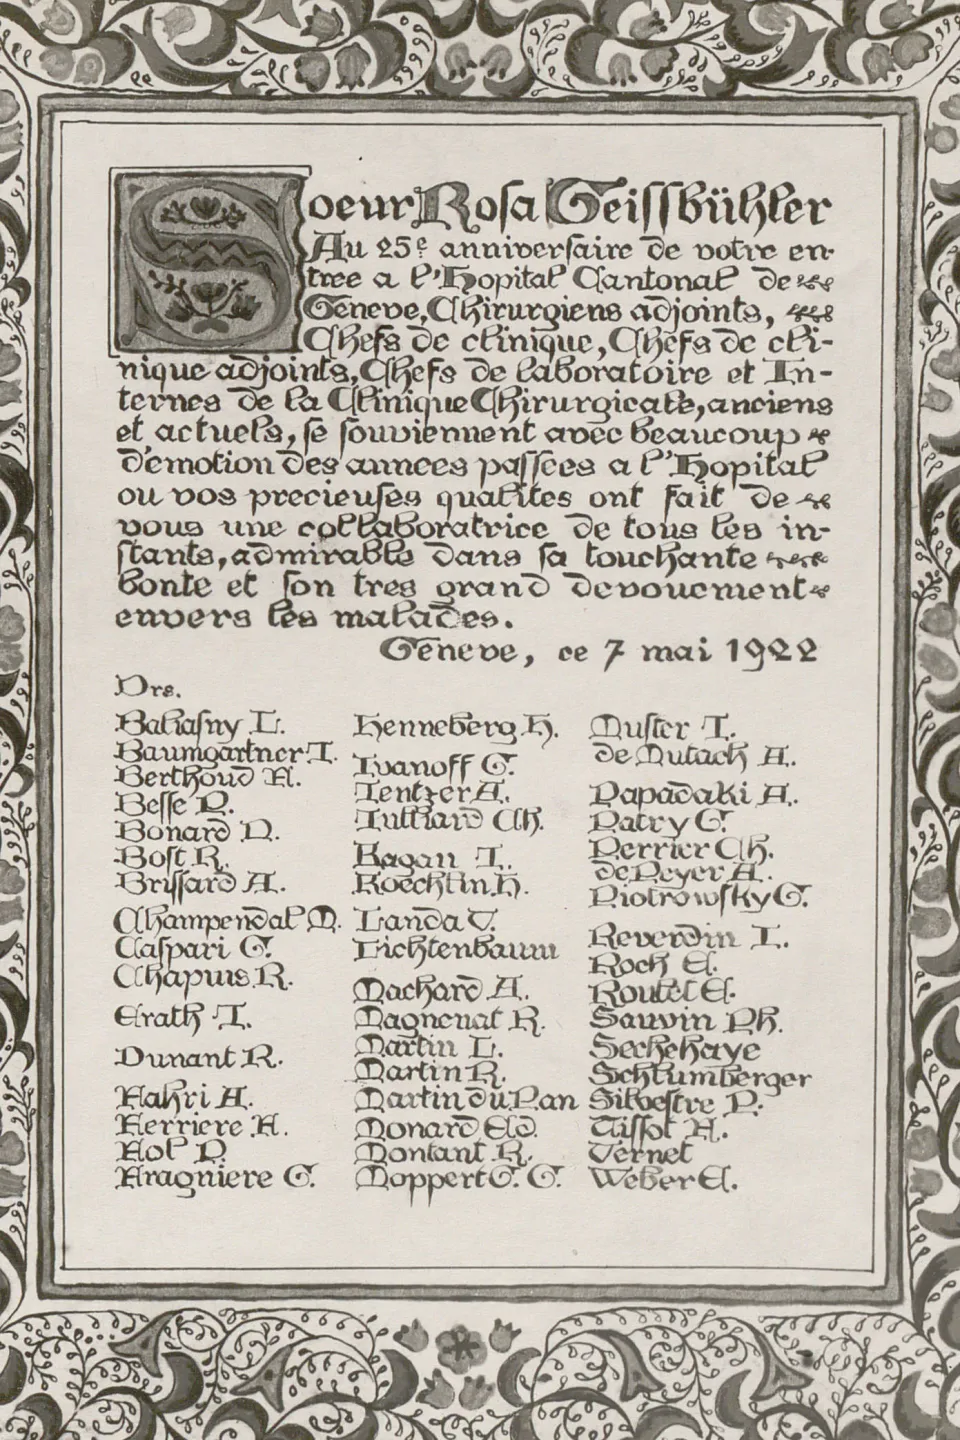 Soeur Rosa Geissbühler
Au 25e anniversaire de votre en-
tree a l'Hopital Cantonal de
Geneve, Chirurgiens adjoints,
Chefs de clinique, Chefs de cli-
nique adjoints, Chefs de laboratoire et In-
ternes de la Clinique Chirurgicale, anciens
et actuels, se souviennent avec beaucoup
d'emotion des annees passees a l'Hopital
ou vos precieuses qualites ont fait de
vous une collaboratrice de tous les in-
stants, admirable dans sa touchante
bonte et son tres grand devouement
envers les malades.
Geneve, ce 7 mai 1922
Drs.
Baliasny L.
Baumgartner J.
Berthoud A.
Besse P.
Bonard D.
Bost R.
Brissard A.
Champendal M.
Caspari G.
Chapuis R.
Erath J.
Dunant R.
Fahri A.
Ferriere F.
Fol P.
Fragniere G.
Henneberg H.
Ivanoff G.
Jentzer A.
Julliard Ch.
Kagan J.
Koechlin H.
Landa V.
Lichtenbaum
Machard A.
Magnenat R.
Martin L.
Martin R.
Martin du Pan
Monard Ed.
Montant R.
Moppert G. G.
Muller J.
de Mutach A.
Papadaki A.
Patry G.
Perrier Ch.
de Peyer A.
Piotrowsky G.
Reverdin J.
Roch E.
Roulet E.
Sauvin Ph.
Sechehaye
Schlumberger
Silvestre P.
Tissot F.
Vernet
Weber E.